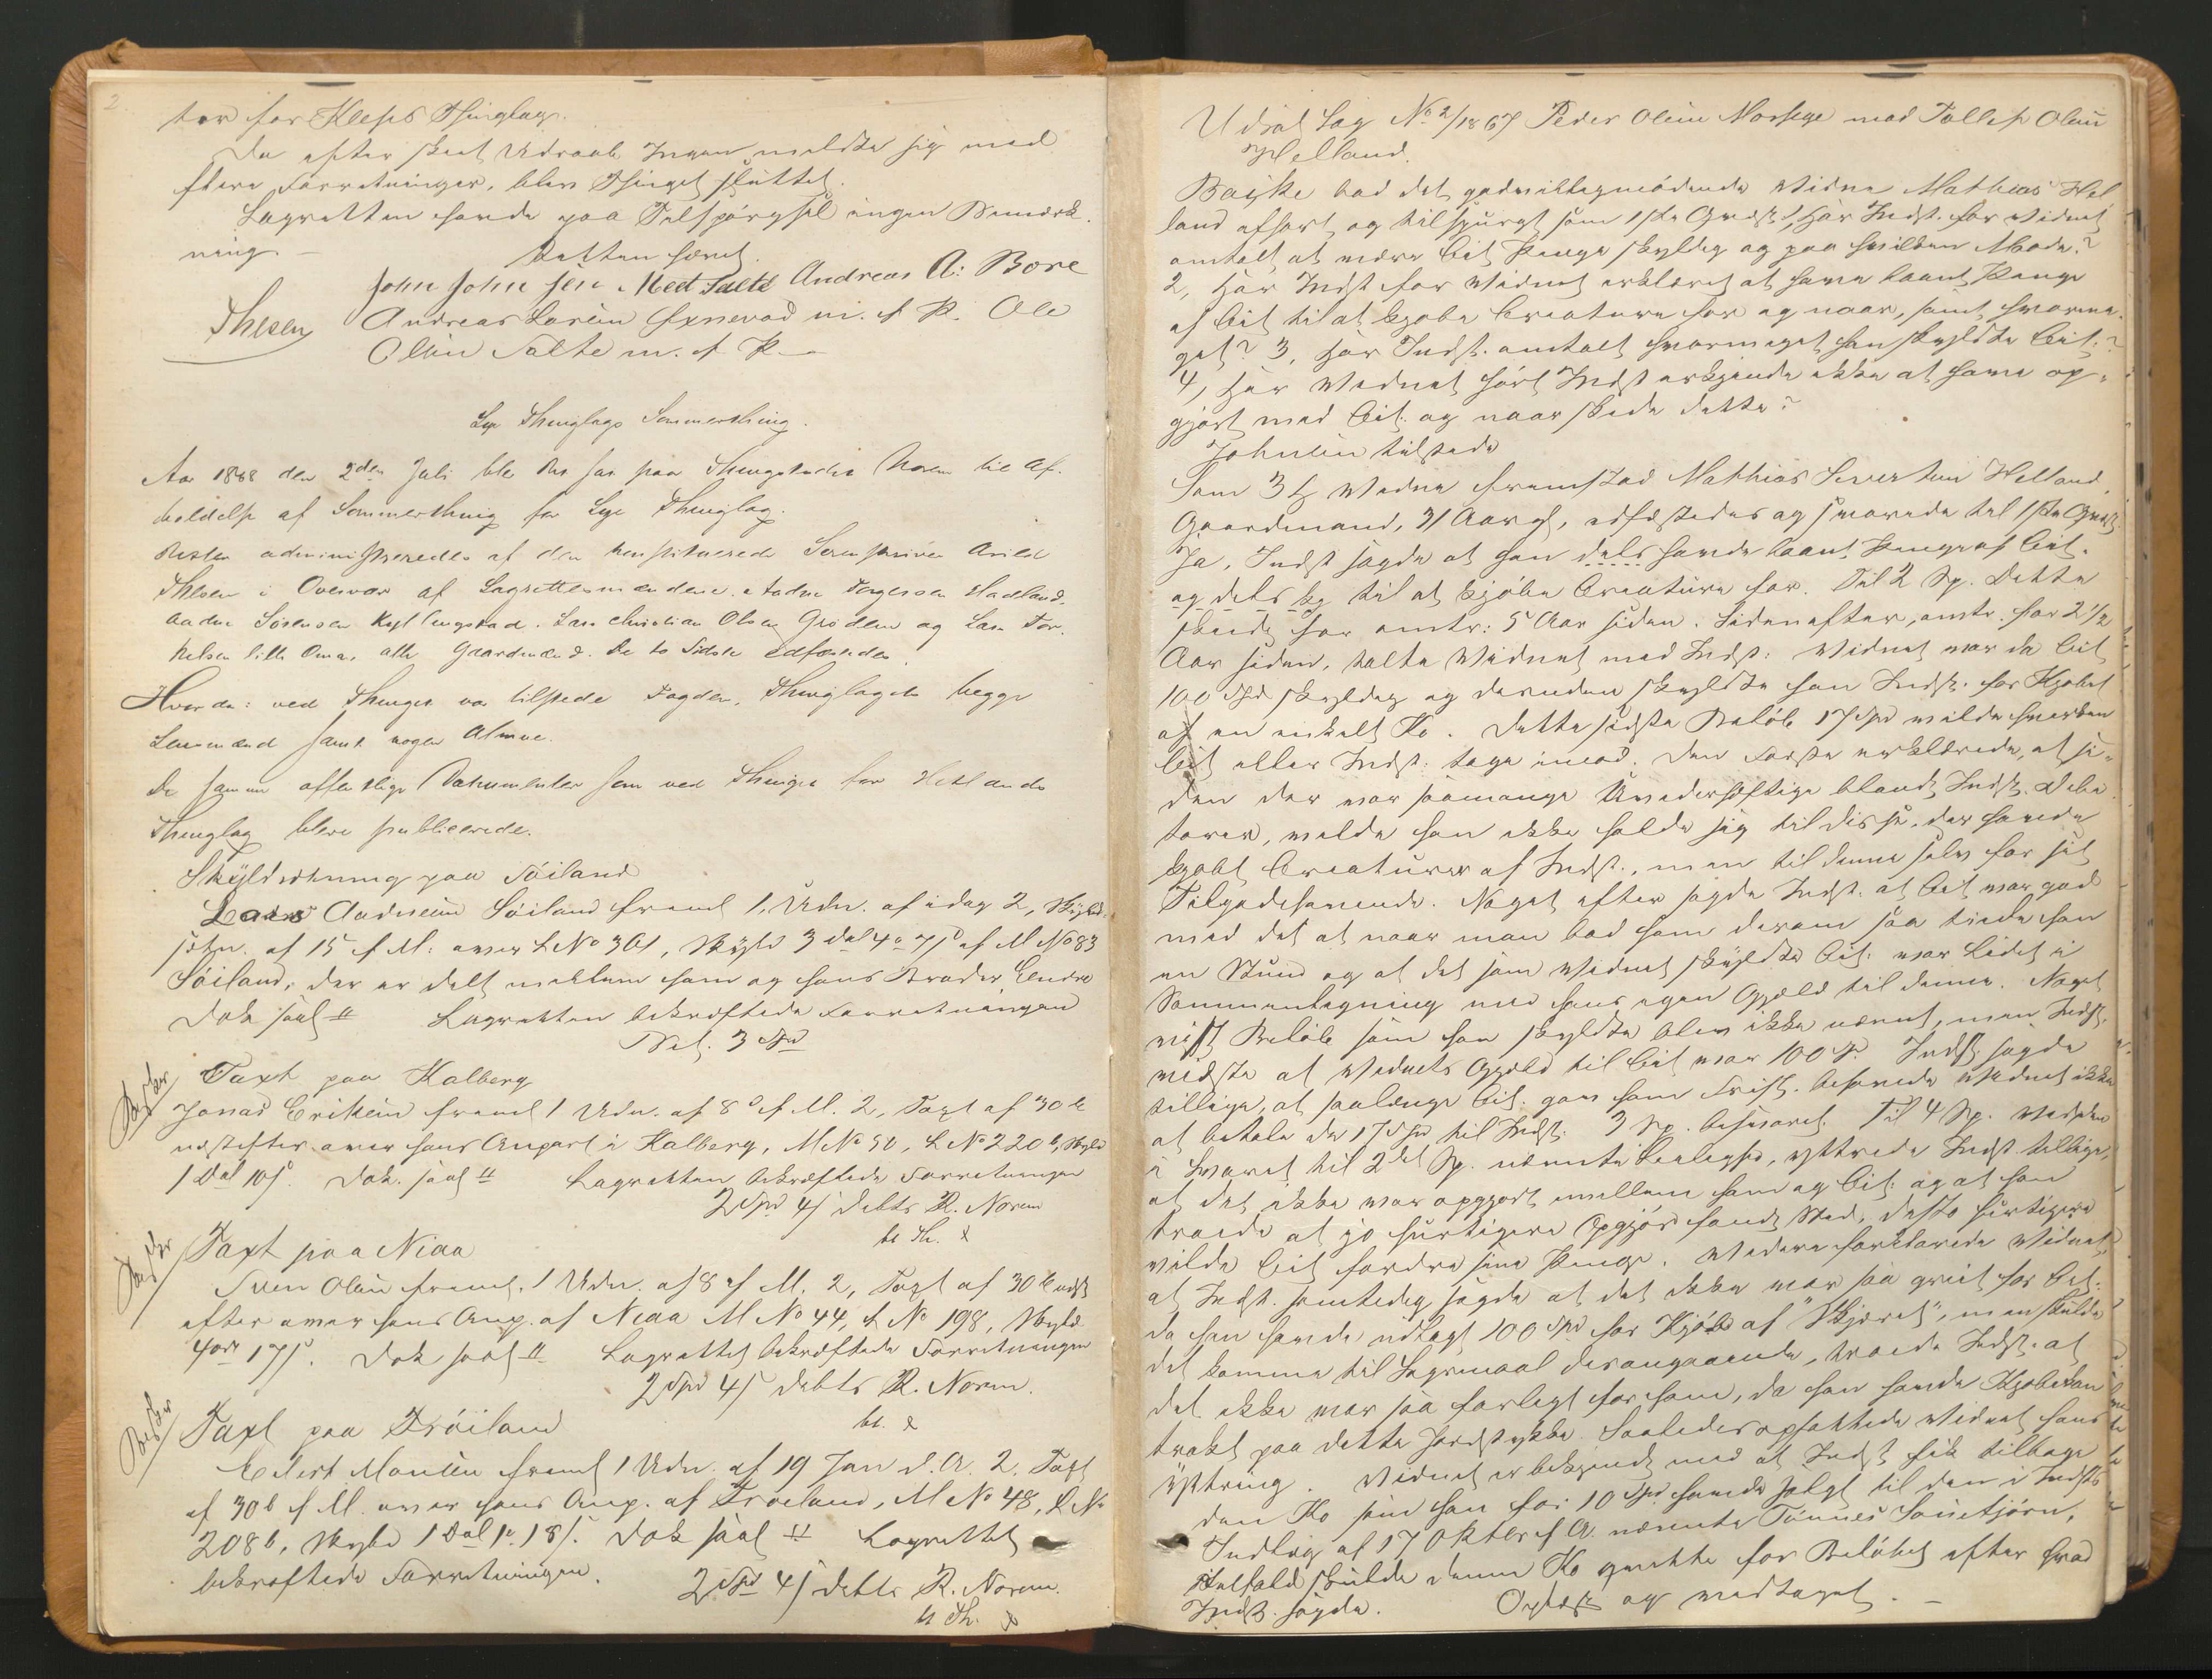 2.
tov for Kleps Thinglag.
Da efter skeet Udraab Ingen meldte sig med
flere Forretninger, blev Thinget sluttet.
Lagretten havde paa Tilspørgsel ingen Bemærk-
ning. –
Retten hævet.
John Johnsen Meet Salte Andreas A: Bore
Thesen Andreas Larsen Øxnevad m. f. P. Ole
Olsen Salte m. f. P.
Lye Thinglags Sommerthing.
Aar 1868 den 2den Juli blev Ret sat paa Thingstedet Noren til Af-
holdelse af Sommerthing for Lye Thinglag.
Retten administreredes af den konstituerede Sorenskriver Arild
Thesen i Overvær af Lagrettesmændene: Aadne Torgersen Hadland,
Aadne Sørensen Kyllingstad, Lars Christian Olsen Gröden og Lars Tor-
kelsen lille Oma, alle Gaardmænd. De to Sidste edfæstedes.
Hvorda: ved Thinget var tilstede Fogden, Thinglagets begge
Lensmænd samt nogen Almue.
De samme offentlige Dokumenter som ved Thinget for Hetlands
Thinglag bleve publicerede.
Skyldsætning paa Söiland
Lars Aadnesen Söiland freml 1, Udn. af idag 2, Skyld-
sætn. af 15 f. M: over L No 301, Skyld 3 dal 4 o 7 s af M No 83
Söiland, der er delt mellem ham og hans Broder Endre
Dok saal. Lagretten bekræftede Forretningen
Bet. 3 Spd
Taxt paa Kalberg
Jonas Eriksen freml 1 Udn. af 8 f. M. 2, Taxt af 30te
næstefter over hans Anpart i Kalberg, M No 50, L No 220 b, Skyld
1 Dal 10 s. Dok. saal. Lagretten bekræftede Forretningen
2 Spd 4 s debts R. Noren
bt Th.
Taxt paa Niaa
Sven Olsen freml. 1 Udn. af 8 f. M. 2, Taxt af 30te næst
efter over hans Anp. af Niaa M No 44, L No 198, Skyld
4 ort 17 s. Dok saal. Lagrettet bekræftede Forretningen
2 Spd 4 s debts R. Noren.
bt.
Taxt paa Tröiland
Eilert Monsen freml 1 Udn. af 19 Jan d. A. 2, Taxt
af 30te f. M. over hans Anp. af Froeland, M No 48, L No
208 b, Skyld 1 Dal 1 o. 18 s. Dok saal. Lagrettet
bekræftede Forretningen. 2 Spd 4 s debts R. Noren.
bt Th.
Udsat Sag No 2/1867 Peder Olsen Norheye mod Tollef Olsen
Helland.
Bajske bad det godvilligmödende Vidne Mathias Hel
land afhørt og tilspurgt som 1ste Qvæst: 1, Har Indst. for Vidnet
omtalt at være Cit Penge skyldig og paa hvilken Maade?
2, Har Indst for Vidnet erklæret at have laant Penge
af Cit til at kjøbe Creature for og naar, samt hvorme-
get? 3, Har Indst. omtalt hvormeget han skyldte Cit:?
4, Har Vidnet hört Indst erkjende ikke at have op-
gjørt med Cit: og naar skede dette?
Johnsen tilstede
Som 3die Vidne fremstod Mathias Sivertsen Helland,
Gaardmand, 31 Aar gl, edfæstedes og svarede til 1ste Qvæst:
Ja, Indst sagde at han dels havde laant Penge af Cit.
og dels til at kjöbe Creature for. Til 2 Sp. Dette
skede for omtr: 5 Aar siden. Sidenefter, omtr. for 2 1/2
Aar siden, talte Vidnet med Indst: Vidnet var da Cit
100 Spd skyldig og desuden skyldte han Indst. for Kjøbet
af en enkelt Ko. Dette sidste Beløb 17 Spd vilde hverken
Cit eller Indst: tage imod. Den Første erklærede, at si-
den der var saamange Uvederhæftige blandt Indst. Debi-
torer, vilde han ikke holde sig til disse, der havde
kjøbt Creaturer af Indst., men til denne selv for sit
Tilgodehavende. Noget efter sagde Indst: at Cit var god
med det at naar man bad ham derom saa tiede han
en Stund og at det som Vidnet skyldte Cit: var Lidet i
Sammenligning med hans egen Gjæld til denne. Noget
vist Beløb som han skyldte blev ikke nævnt, men Indst.
vidste at Vidnets Gjæld til Cit var 100 Sp. Indst. sagde
tillige, at saalænge Cit: gav ham Frist. behøvede Vidnet ikke
at betale de 17 Spd til Indst. 3 Sp. besvaret. Til 4 Sp. Ved den
i Svaret til 2det Sp. nævnte Leilighed, yttrede Indst. tillige,
at det ikke var opgjort mellem ham og Cit: og at han
troede at jo hurtigere Opgjör fandt Sted, desto hurtigere
vilde Cit fordre sine Penge. Videre forklarede Vidnet,
at Indst. samtidig sagde at det ikke var saa greit for Cit.
da han havde udlagt 100 Spd for Kjöbet af "Skjæret", men skulde
det komme til Søgsmaal desangaaende, troede Indst. at
det ikke var saa farligt for ham, da han havde Kjøbekon
trakt paa dette Jordstykke. Saaledes opfattede Vidnet hans
Yttring. Vidnet er bekjendt med at Indst fik tilbage
den Ko som han for 10 Spd havde solgt til den i Indsts
Indlæg af 17 Oktbr f. A. nævnte Tönnes Sönetjörn,
Ialfald skulde denne Ko gjælde for Beløbet efter hvad
Indst. sagde. Oplæst og vedtaget. –